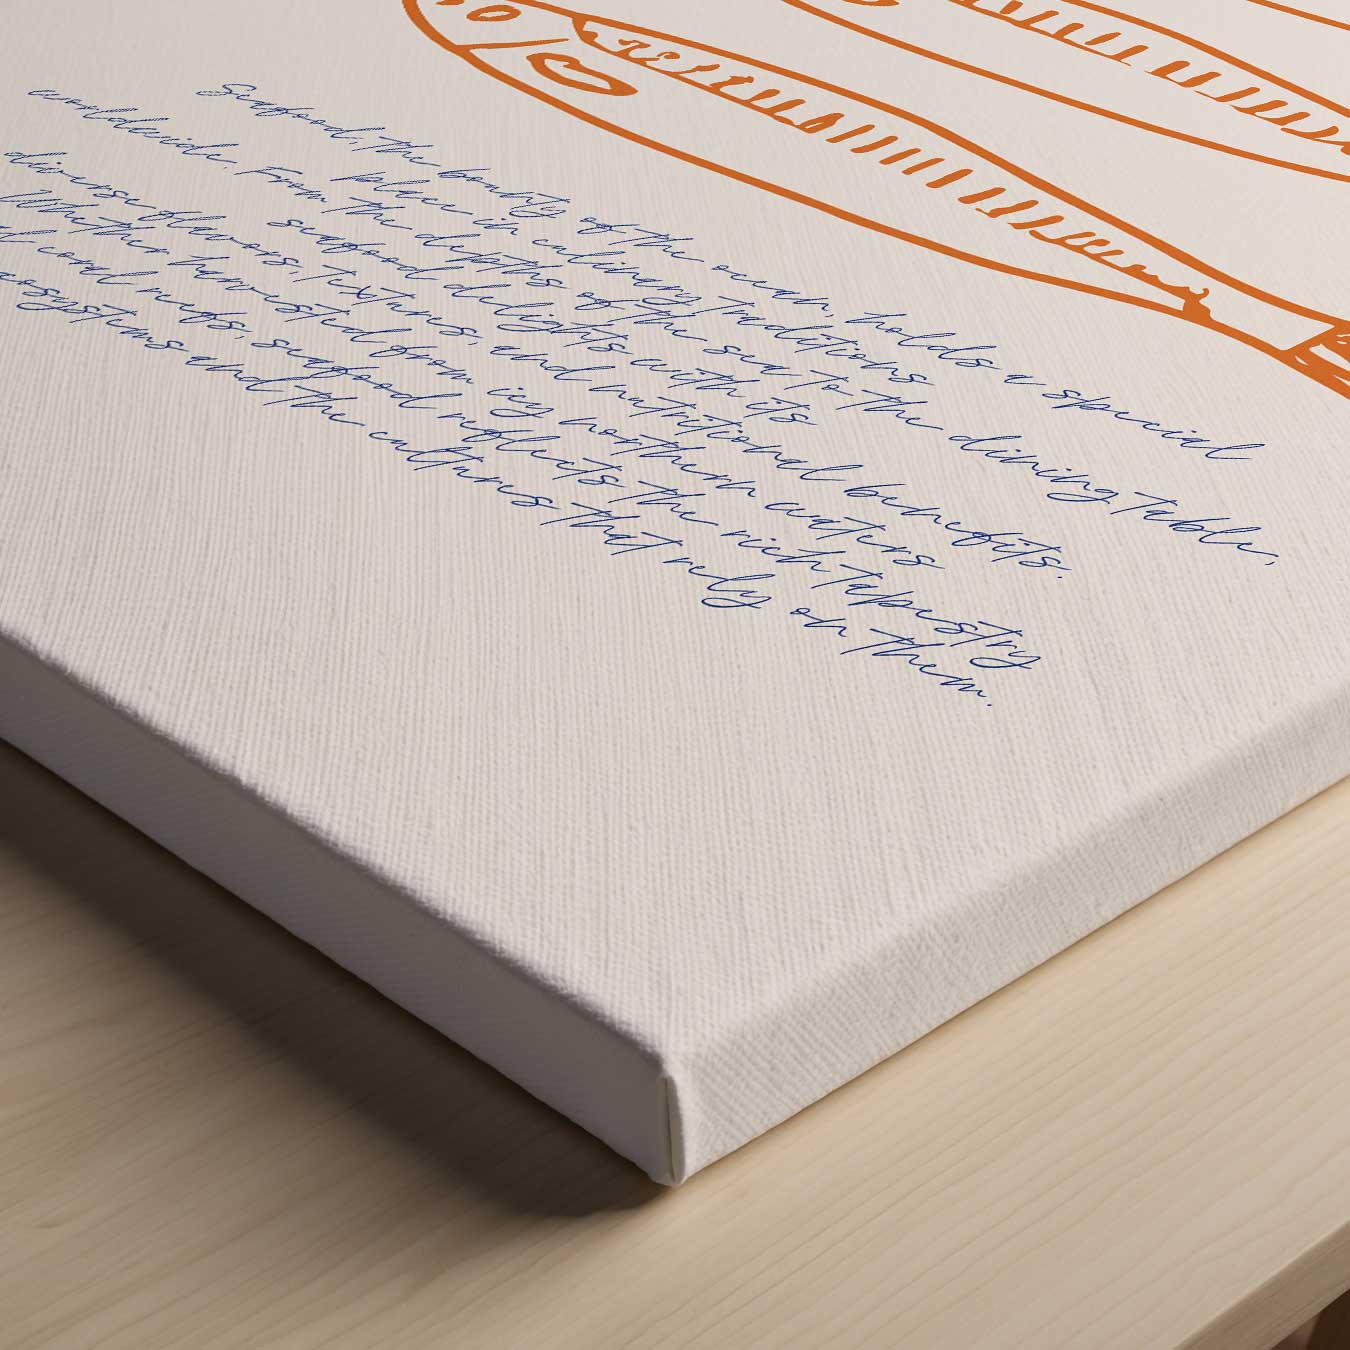 Seafood, the bounty of the ocean, holds a special
place in culinary traditions
worldwide. From the depths of the sea to the dining table,
seafood delights with its
diverse flavors, textures, and nutritional benefits.
Whether harvested from icy northern waters
coral reefs, seafood reflects the rich tapestry
cosystems and the cultures that rely on them.